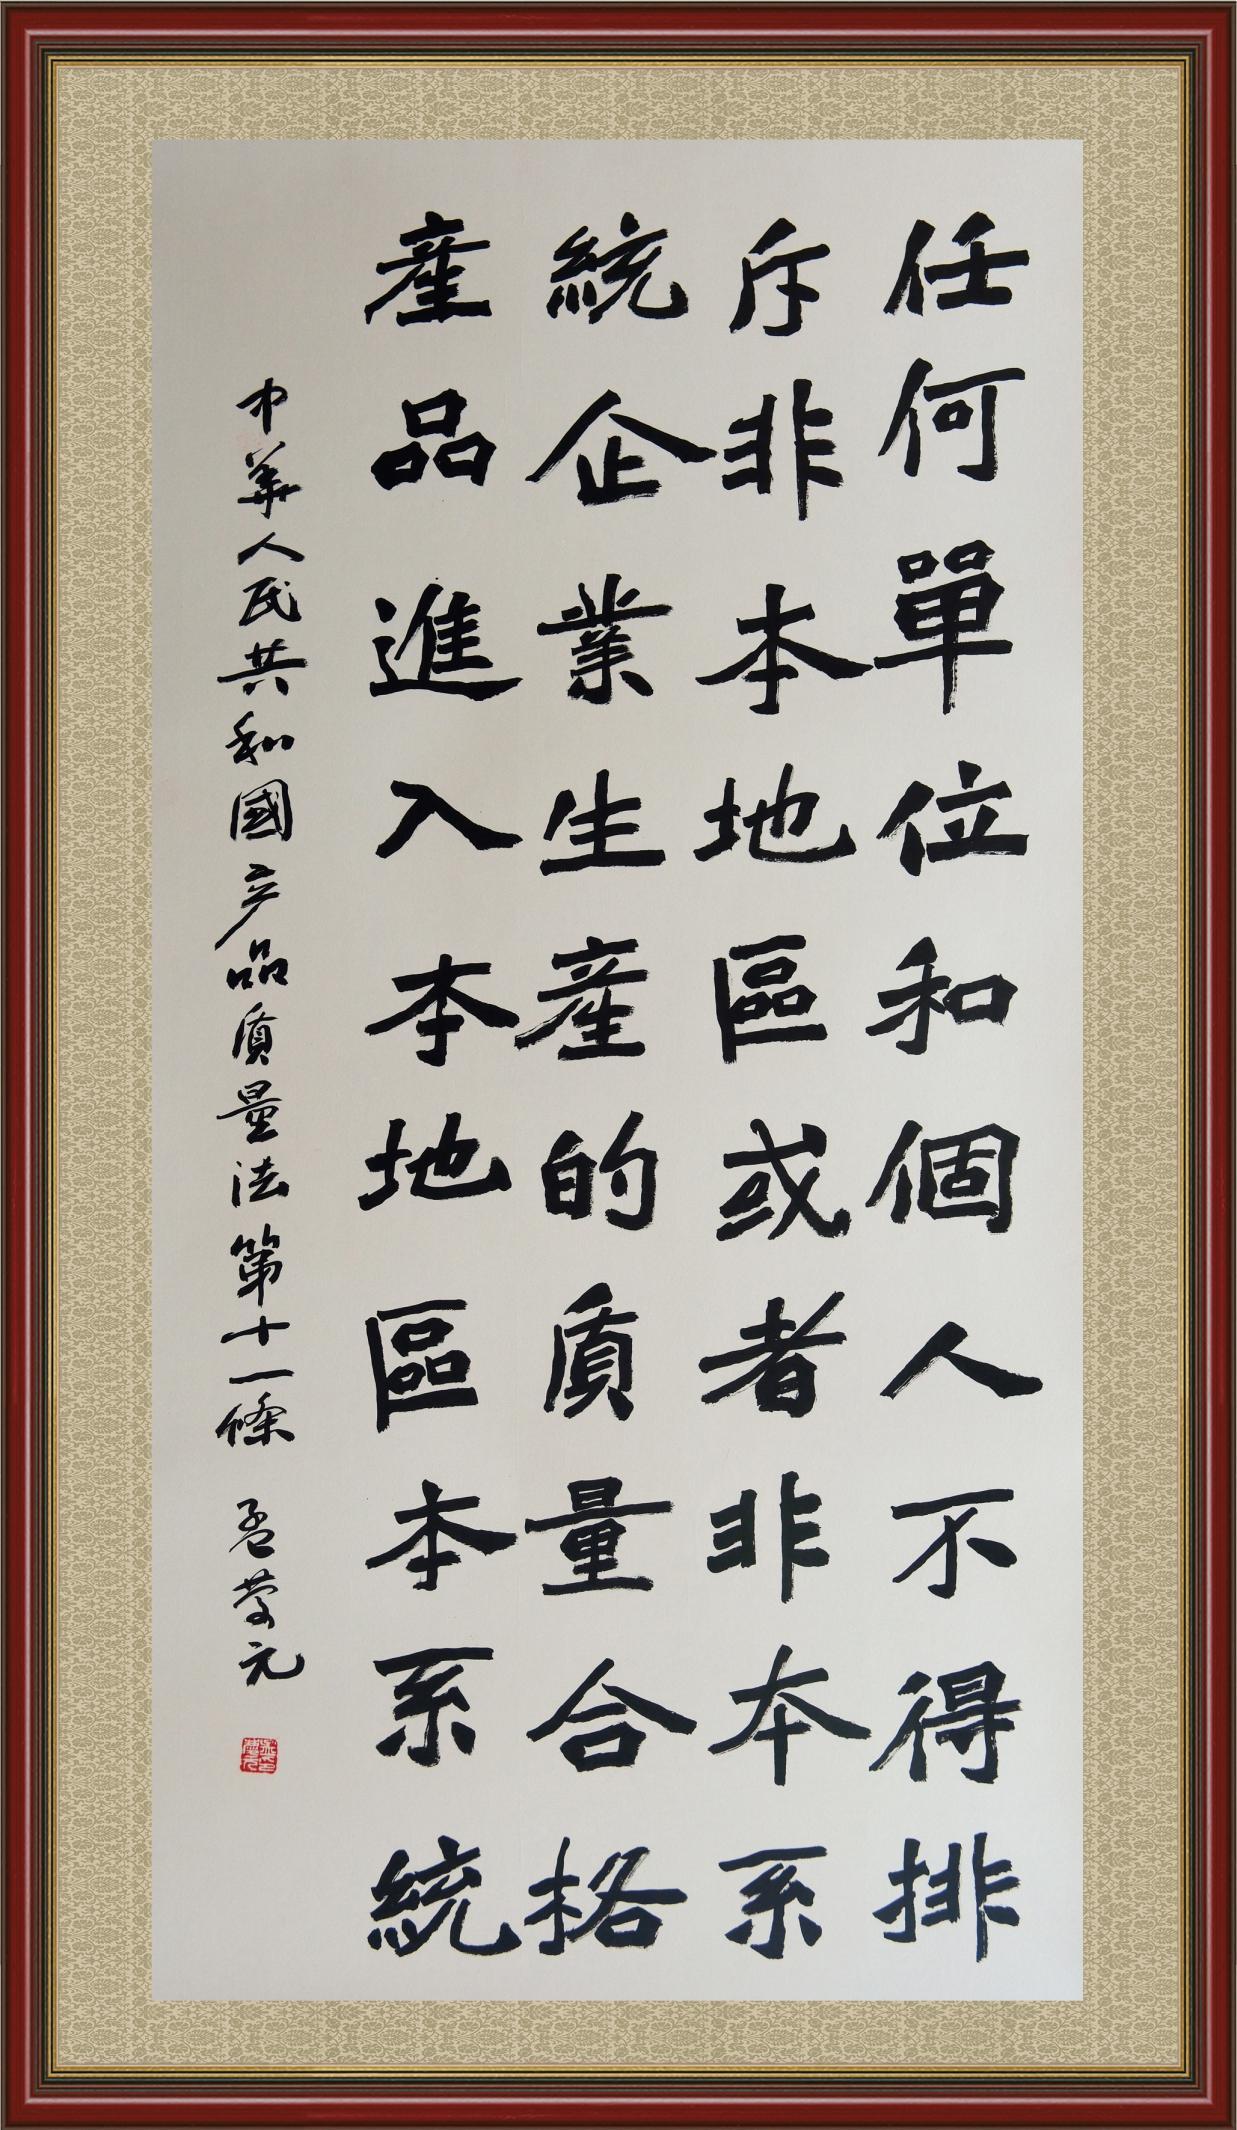 任何單位和個人不得排
斥非本地區或者非本系
統企業生産的质量合格
産品進入本地區本系統
中華人民共和國产品质量法第十一條 孟荣元